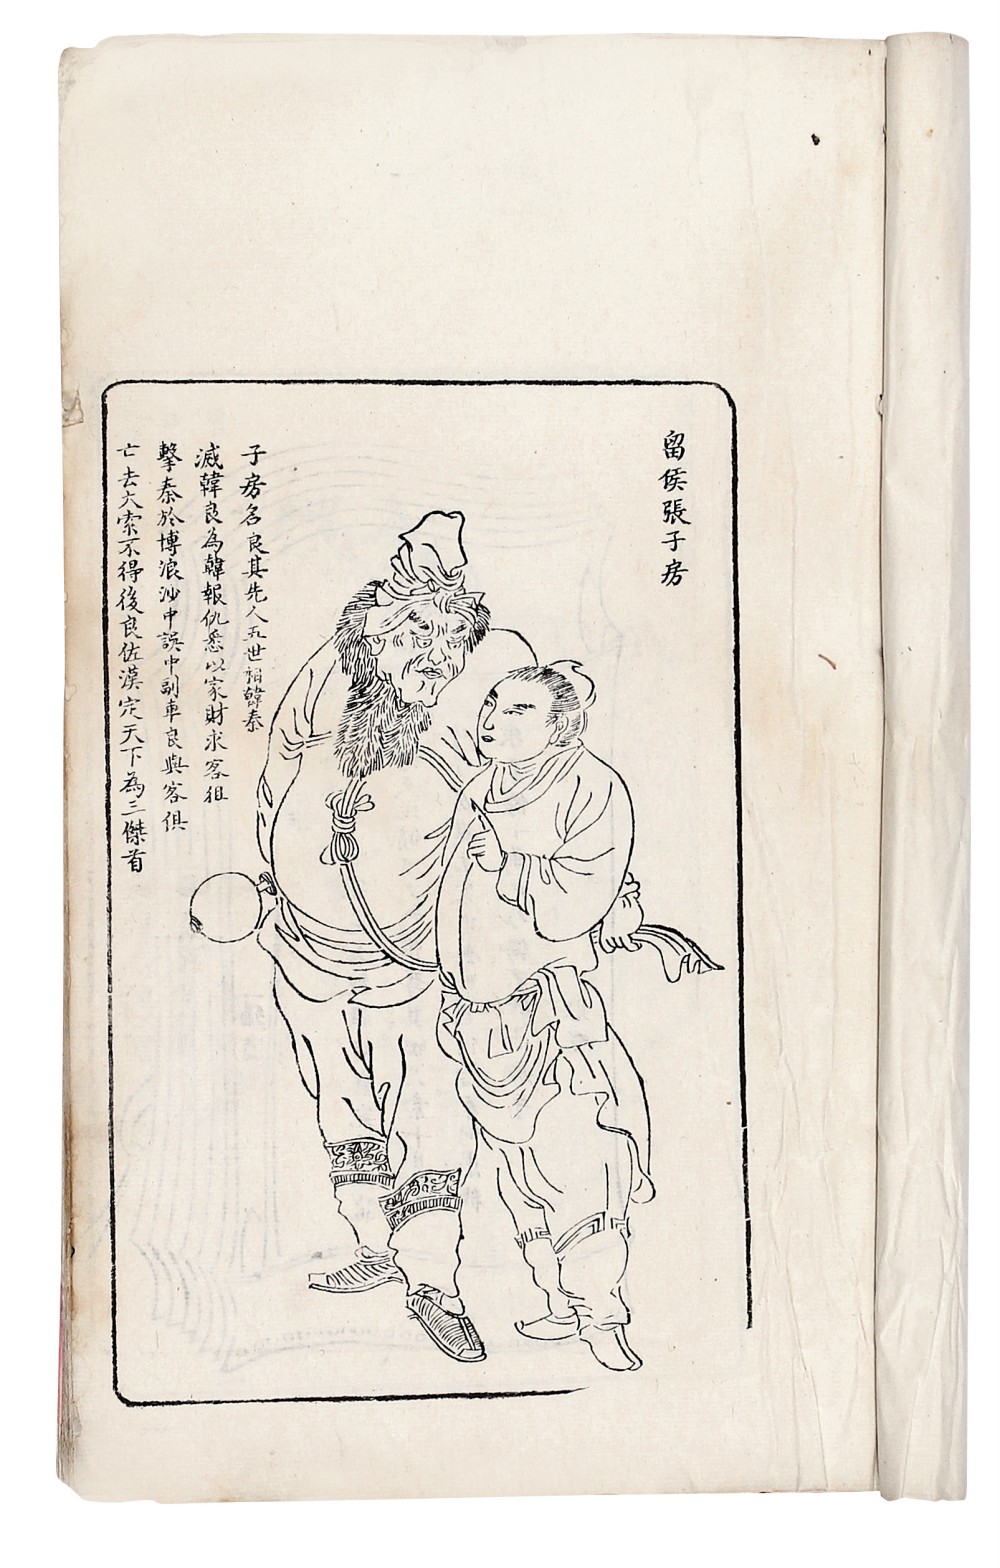 留侯張子房
子房名良其先人五世相韓秦
滅韓良為韓報仇悉以家財求客狙
擊秦於博浪沙中誤中副車良與客俱
亡去大索不得後良佐漢定天下為三傑首